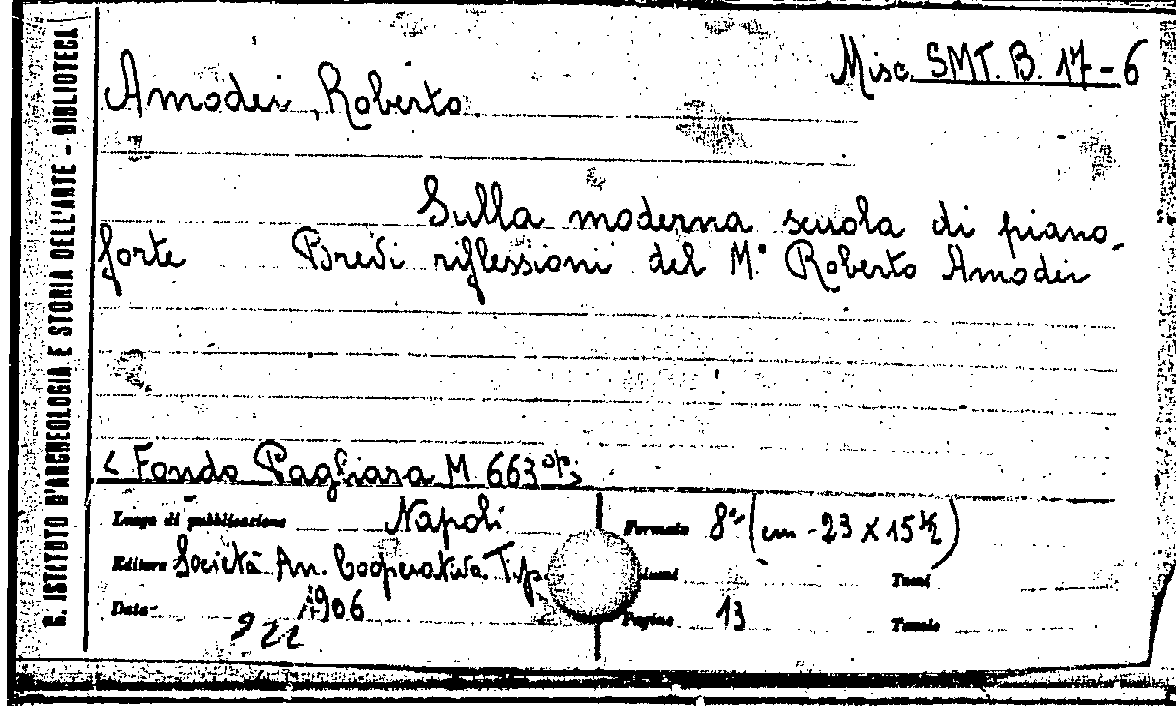 R. ISTITUTO D'ARCHEOLOGIA E STORIA DELL'ARTE - BIBLIOTECA
Misc. SMT. B. 17-6
Amodei, Roberto
Sulla moderna scuola di piano-
forte Brevi riflessioni del M.° Roberto Amodei
< Fondo Pagliara M. 663
Luogo di pubblicazione Napoli
Formato 8° (cm - 23 X 15 ½)
Editore Società An. Cooperativa Tip.
Tomi
Data 1906
Pagine 13
Tavole
922